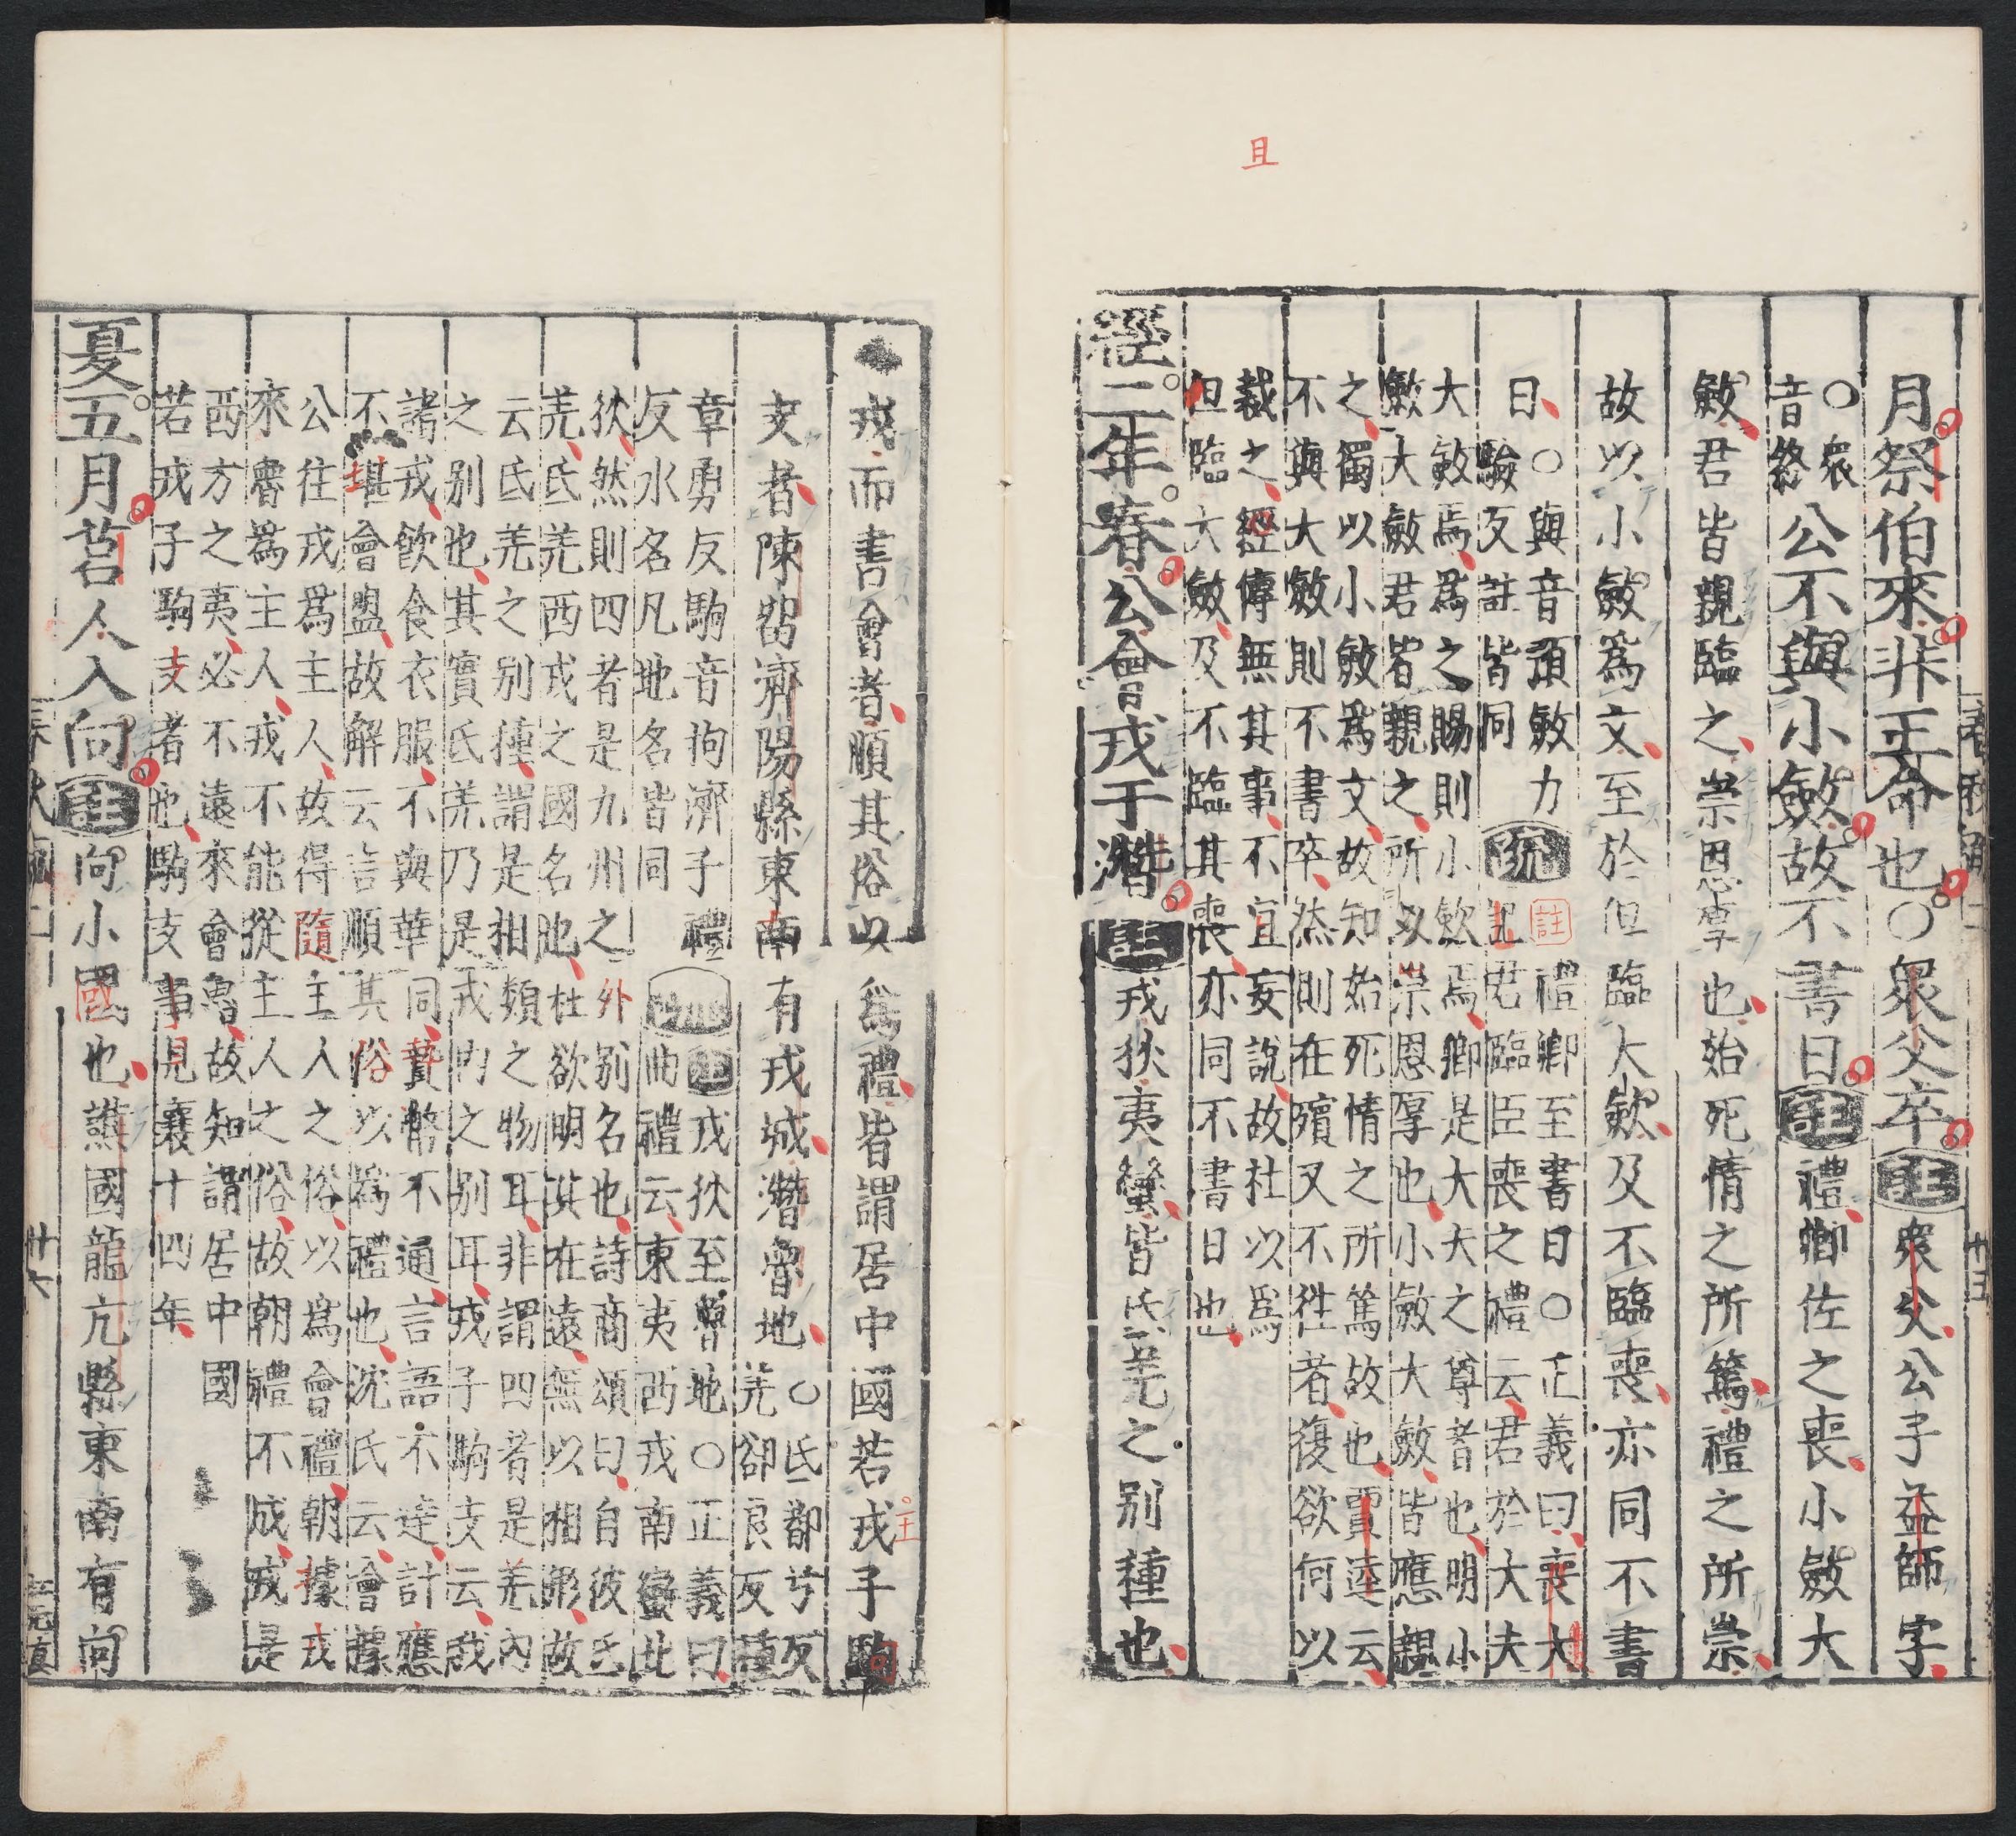 且
月祭伯來非王命也○衆父卒註衆父公子益師字
○衆
音終
公不與小斂故不書日註禮卿佐之喪小斂大
斂君皆親臨之崇恩厚也始死情之所篤禮之所崇
故以小斂爲文至於但臨大斂及不臨喪亦同不書
日
○與音預斂力
驗反註皆同
疏
註禮卿至書日○正義曰喪大
記君臨臣喪之禮云君於大夫
大斂焉爲之賜則小斂焉卿是大夫之尊者也明小
斂大斂君皆親之所以崇恩厚也小斂大斂皆應親
之獨以小斂爲文故知始死情之所篤故也賈逵云
不與大斂則不書卒然則在殯又不往者復欲何以
裁之經傳無其事不宜妄說故杜以爲
但臨大斂及不臨其喪亦同不書日也
經二年春公會戎于潛註戎狄夷蠻皆氐羌之別種也
廿五
戎而書會者順其俗以爲禮皆謂居中國若戎子駒
支者陳留濟陽縣東南有戎城潛魯地
○氐都兮反
羌卻良反種
章勇反駒音拘濟子禮
反水名凡地名皆同
疏
註戎狄至魯地○正義曰
曲禮云東夷西戎南蠻北
狄然則四者是九州之外別名也詩商頌曰自彼氐
羌氐羌西戎之國名也杜欲明其在遠無以相形故
云氐羌之別種謂是相類之物耳非謂四者是羌內
之別也其實氐羌乃是戎內之別耳戎子駒支云我
諸戎飲食衣服不與華同贄幣不通言語不達計應
不堪會盟故解云言順其俗以爲禮也沈氏云會據
公往戎爲主人故得隨主人之俗以爲會禮朝據戎
來魯爲主人戎不能從主人之俗故朝禮不成戎是
西方之夷必不遠來會魯故知謂居中國
若戎子駒支者也駒支事見襄十四年
夏五月莒人入向註向小國也譙國龍亢縣東南有向
廿六